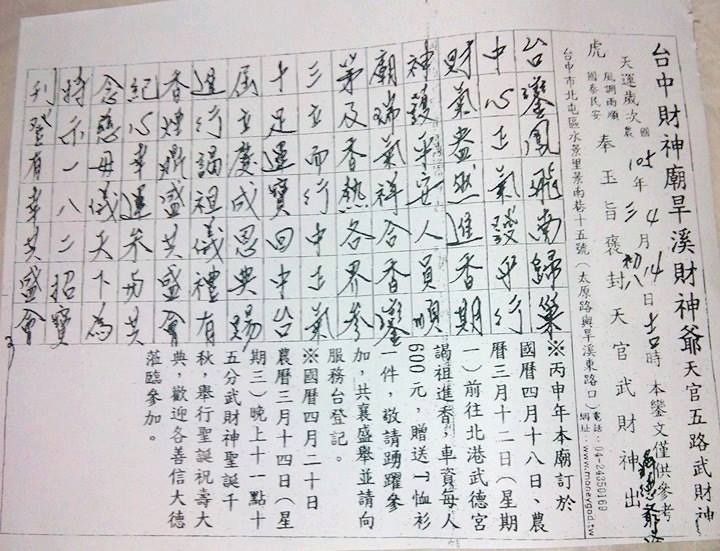 台中財神廟旱溪財神爺天官五路武財神
天運歲次國105年4月14日吉時本鑾文僅供參考
農三初八
風調雨順
國泰民安
虎奉玉旨褒封天官武財神出
台中市北屯區水景里景南巷十五號(太原路與旱溪東路口)
電話:04-24350169
網址:www.moneygod.tw
台鑾鳳飛南歸巢
中心正氣發平行
財氣盎然進香期
神護平安人員順
廟瑞氣祥合香鑾
第及香熱各界參
三立而行中正氣
十足運寶回中台
屆立慶成恩典賜
進行謁祖儀禮有
香煙鼎盛共盛會
紀心幸運參與共
念慈母儀天下為
特示一八二招寶
刊登有幸共盛會
※丙申年本廟訂於
國曆四月十八日、農
曆三月十二日(星期
一)前往北港武德宮
謁祖進香,車資每人
600元,贈送T恤衫
一件,敬請踴躍參
加,共襄盛舉並請向
服務台登記。
※國曆四月二十日
農曆三月十四日(星
期三)晚上十一點十
五分武財神聖誕千
秋,舉行聖誕祝壽大
典,歡迎各善信大德
蒞臨參加。